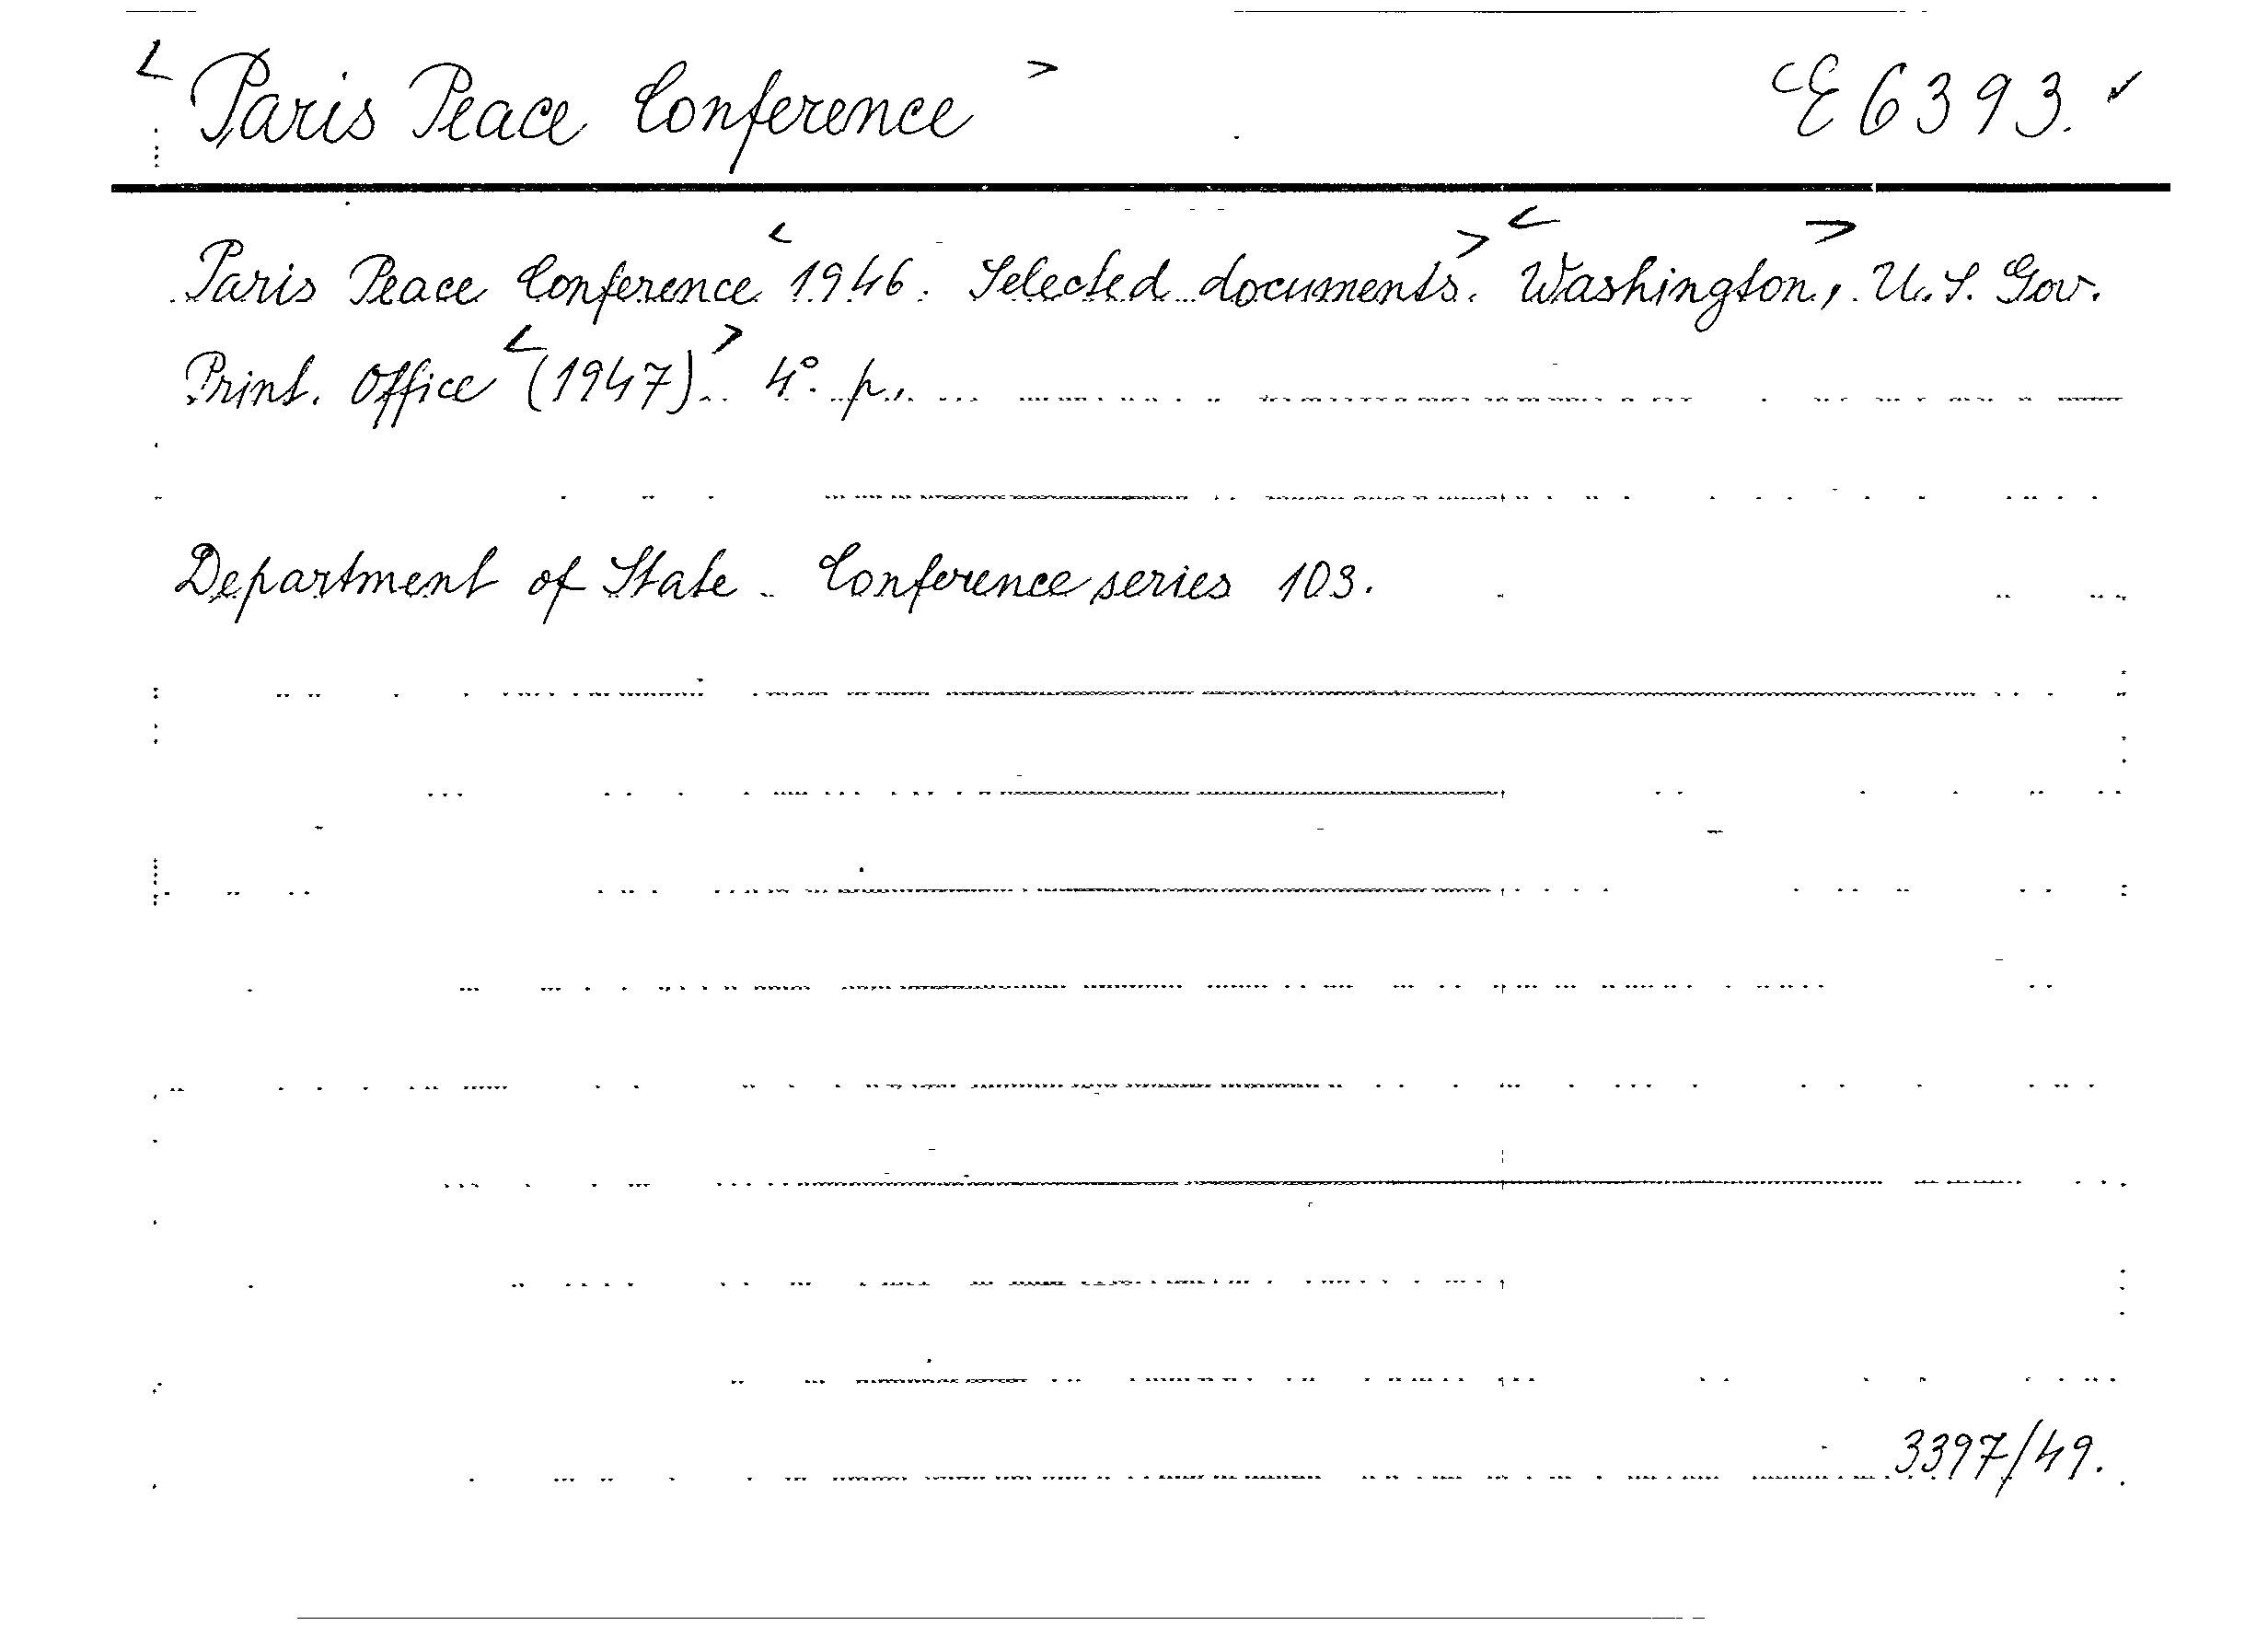 < Paris Peace Conference > E 6393.
Paris Peace Conference < 1946. Selected documents. > < Washington, > U.S. Gov.
Print. Office < (1947). > 4° p.
Department of State. Conference series 103.
3397/49.